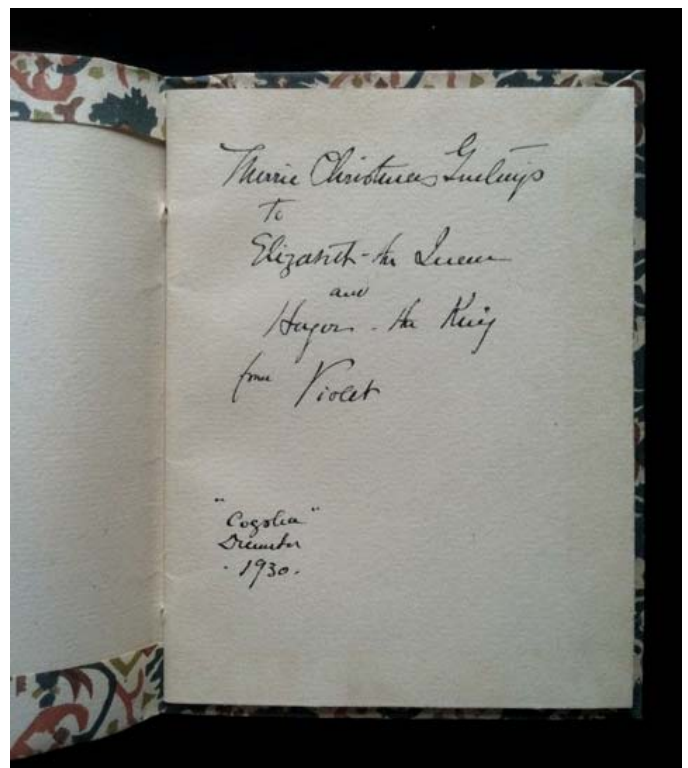 Merrie Christmas Greetings
To
Elizabeth - the Queen
and
- the King
from Violet
"
"
December
. 1930.